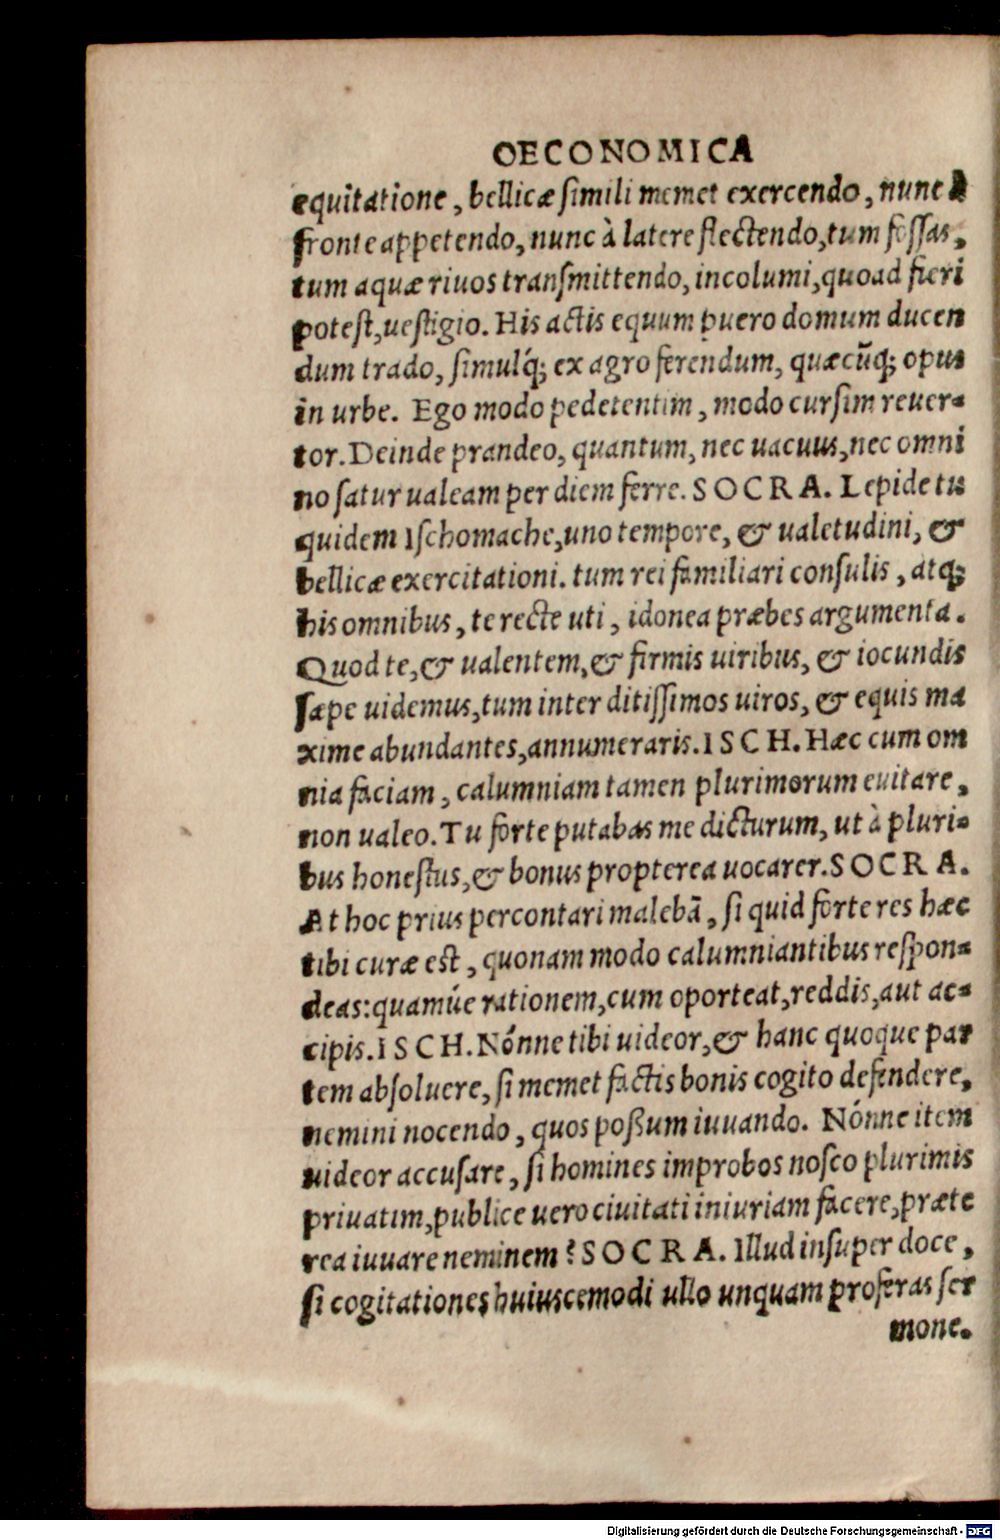 OECONOMICA
equitatione, bellicæ simili memet exercendo, nunc à
fronte appetendo, nunc à latere flectendo, tum fossas,
tum aquæ riuos transmittendo, incolumi, quoad fieri
potest, uestigio. His actis equum puero domum ducen
dum trado, simulq́; ex agro ferendum, quæcũq; opus
in urbe. Ego modo pedetentim, modo cursim reuer-
tor. Deinde prandeo, quantum, nec uacuus, nec omni
no satur ualeam per diem ferre. SOCRA. Lepide tu
quidem Ischomache, uno tempore, & ualetudini, &
bellicæ exercitationi. tum rei familiari consulis, atq;
his omnibus, te recte uti, idonea præbes argumenta.
Quod te, & ualentem, & firmis uiribus, & iocundis
sæpe uidemus, tum inter ditissimos uiros, & equis ma
xime abundantes, annumeraris. ISCH. Hæc cum om
nia faciam, calumniam tamen plurimorum euitare,
non ualeo. Tu forte putabas me dicturum, ut à pluri-
bus honestus, & bonus propterea uocarer. SOCRA.
At hoc prius percontari malebã, si quid forte res hæc
tibi curæ est, quonam modo calumniantibus respon-
deas: quamúe rationem, cum oporteat, reddis, aut ac-
cipis. ISCH. Nónne tibi uideor, & hanc quoque par
tem absoluere, si memet factis bonis cogito defendere,
nemini nocendo, quos poßum iuuando. Nónne item
uideor accusare, si homines improbos nosco plurimis
priuatim, publice uero ciuitati iniuriam facere, præte
rea iuuare neminem? SOCRA. Illud insuper doce,
si cogitationes huiuscemodi ullo unquam proferas ser
mone.
Digitalisierung gefördert durch die Deutsche Forschungsgemeinschaft - DFG